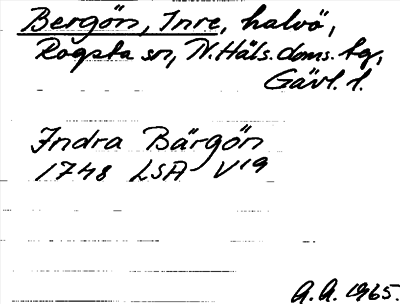 Bergön, Inre, halvö,
Rogsta sn, N. Häls. doms. tg,
Gävl. l.
Indra Bärgön
1748 LSA V19
A.A. 1965.